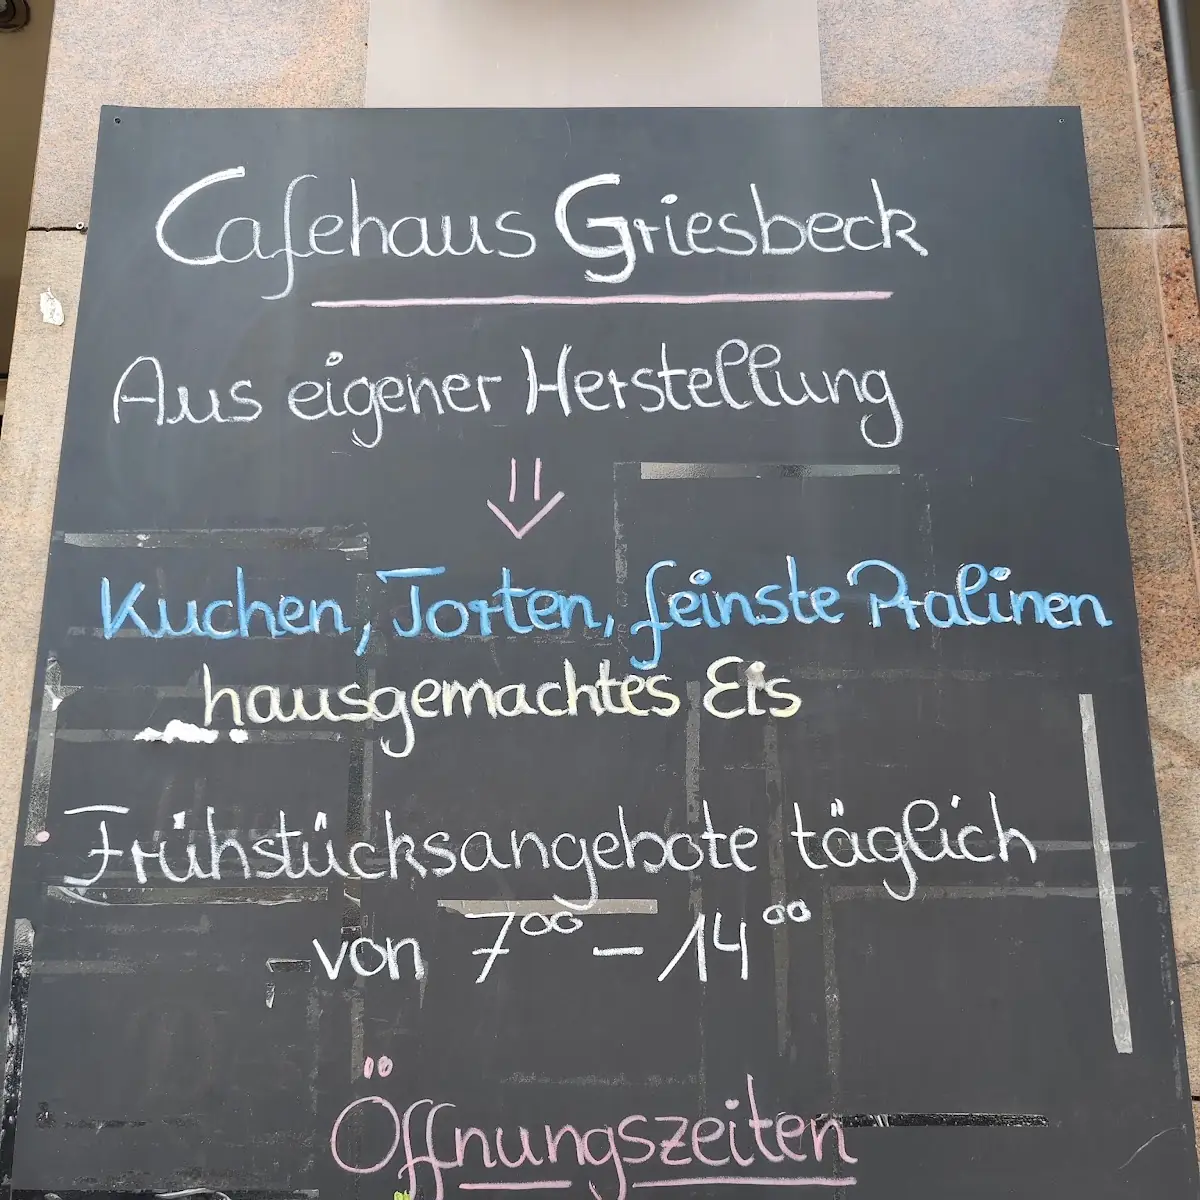 Cafehaus Griesbeck
Aus eigener Herstellung
Kuchen, Torten, feinste Pralinen
hausgemachtes Eis
Frühstücksangebote täglich
von 7⁰⁰ – 14⁰⁰
Öffnungszeiten